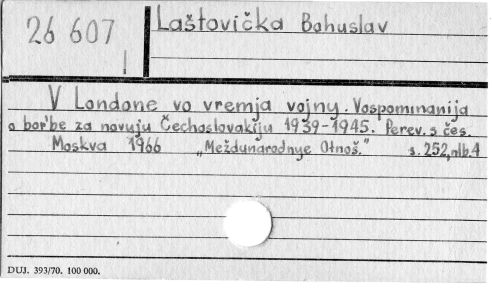 26 607
I
Laštovička Bohuslav
V Londone vo vremja vojny. Vospominanija
o bor'be za novuju Čechoslovakiju 1939-1945. Perev. s čes.
Moskva 1966 „Meždunarodnye Otnoš." s. 252, nlb. 4
DUJ. 393/70. 100 000.